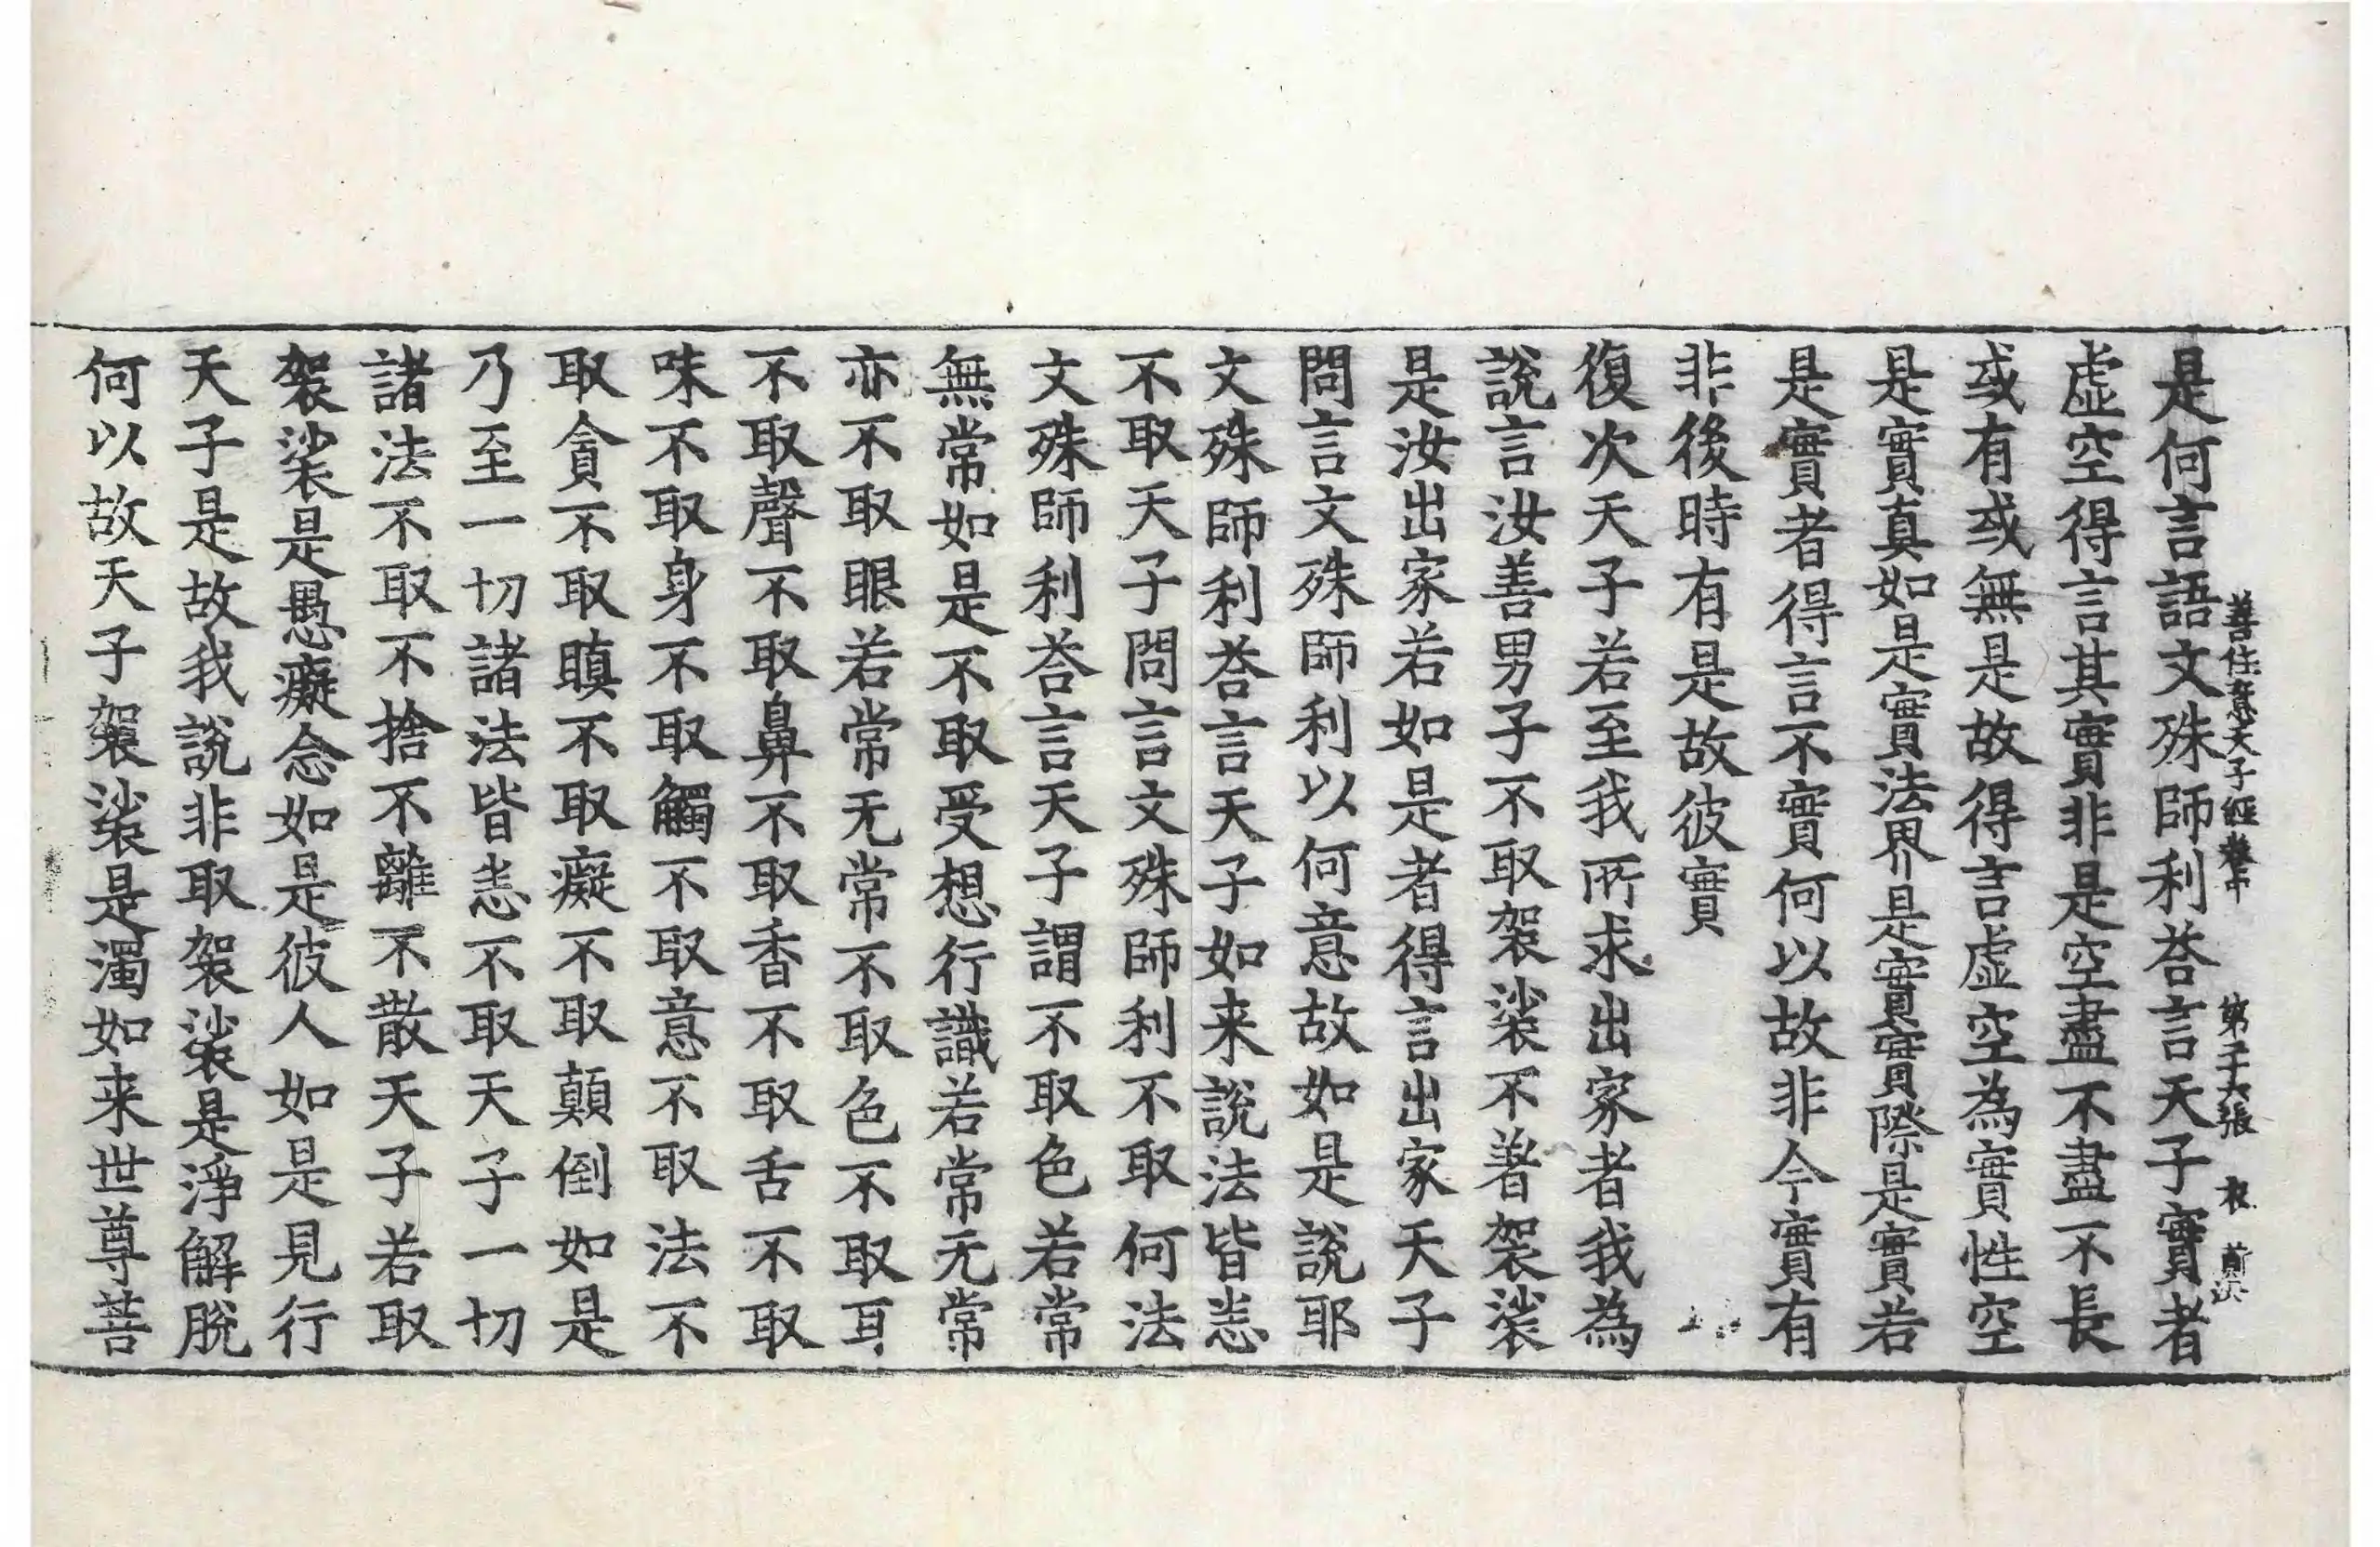 善住意天子經卷中 第二十六張
是何言語文殊師利荅言天子實者
虛空得言其實非是空盡不盡不長
或有或無是故得言虛空為實性空
是實真如是實法界是實實際是實若
是實者得言不實何以故非今實有
非後時有是故彼實
復次天子若至我所求出家者我為
說言汝善男子不取袈裟不著袈裟
是汝出家若如是者得言出家天子
問言文殊師利以何意故如是說耶
文殊師利荅言天子如来說法皆悉
不取天子問言文殊師利不取何法
文殊師利荅言天子謂不取色若常
無常如是不取受想行識若常无常
亦不取眼若常无常不取色不取耳
不取聲不取鼻不取香不取舌不取
味不取身不取觸不取意不取法不
取貪不取瞋不取癡不取顛倒如是
乃至一切諸法皆悉不取天子一切
諸法不取不捨不離不散天子若取
袈裟是愚癡念如是彼人如是見行
天子是故我說非取袈裟是淨解脫
何以故天子袈裟是濁如来世尊菩